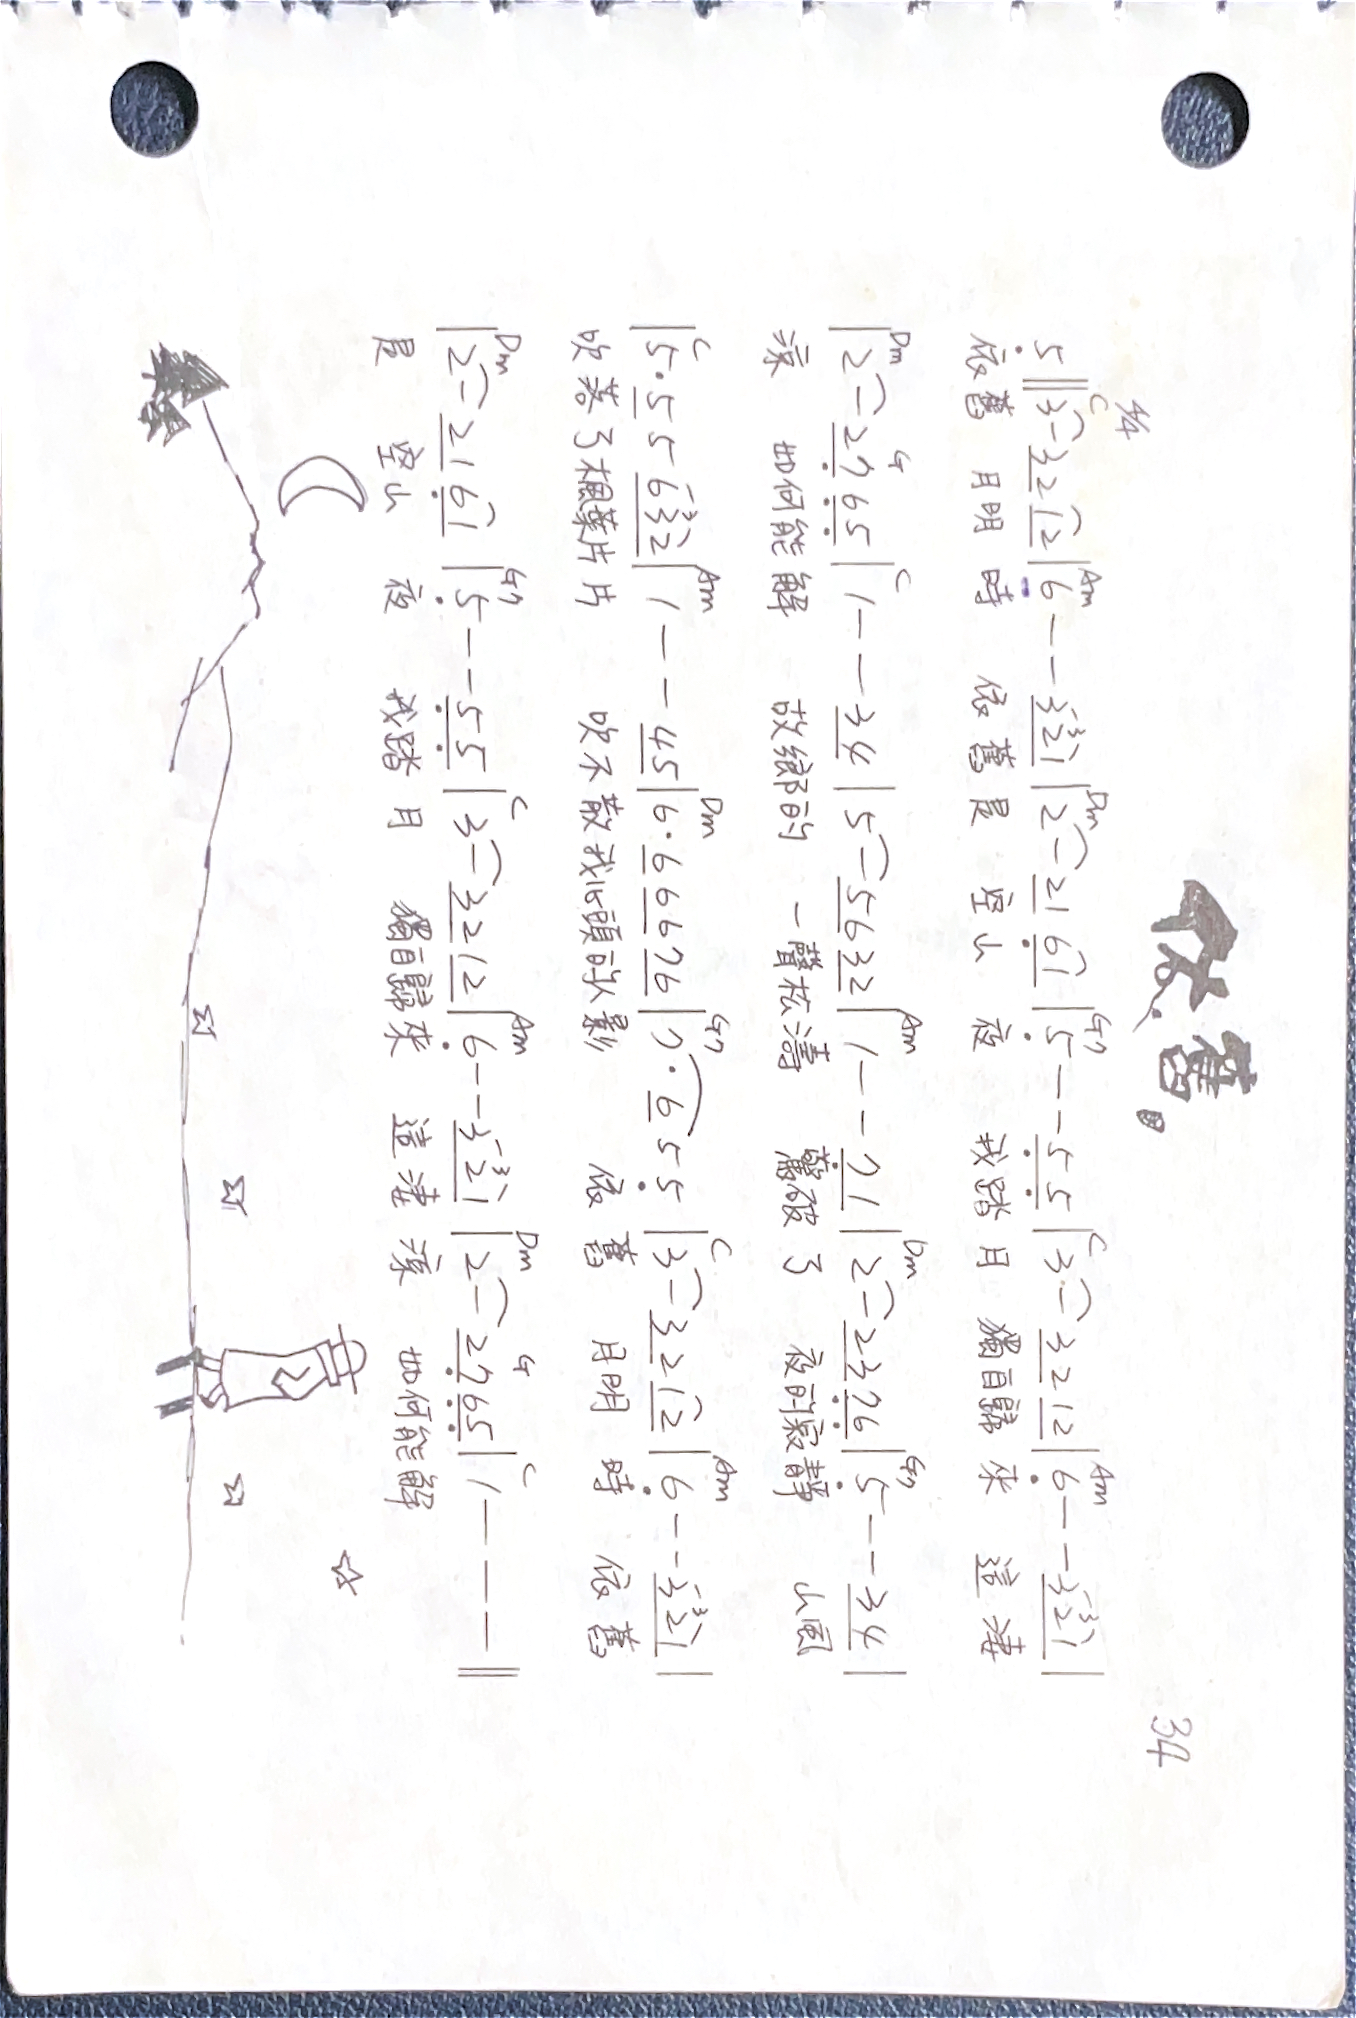 依舊
34
4/4
C Am Dm G7 C Am
5 ‖ 3 - 32 12 | 6 - - 321 | 2 - 21 61 | 5 - - 55 | 3 - 32 12 | 6 - - 321 |
依舊 月明 時 依舊是 空山 夜 我踏月 獨自歸 來 這淒
Dm G C Am Dm G7
| 2 - 27 65 | 1 - - 34 | 5 - 56 32 | 1 - - 71 | 2 - 23 76 | 5 - - 34 |
涼 如何能解 故鄉的 一聲松濤 驚破了 夜的寂靜 山風
C Am Dm G7 C Am
| 5·5 5 632 | 1 - - 45 | 6·6 66 76 | 7·6 5 5 | 3 - 32 12 | 6 - - 321 |
吹落了楓葉片片 吹不散我心頭的人影 依舊 月明 時 依舊
Dm G7 C Am Dm G C
| 2 - 21 61 | 5 - - 55 | 3 - 32 12 | 6 - - 321 | 2 - 27 65 | 1 - - - ‖
是 空山 夜 我踏月 獨自歸來 這淒涼 如何能解